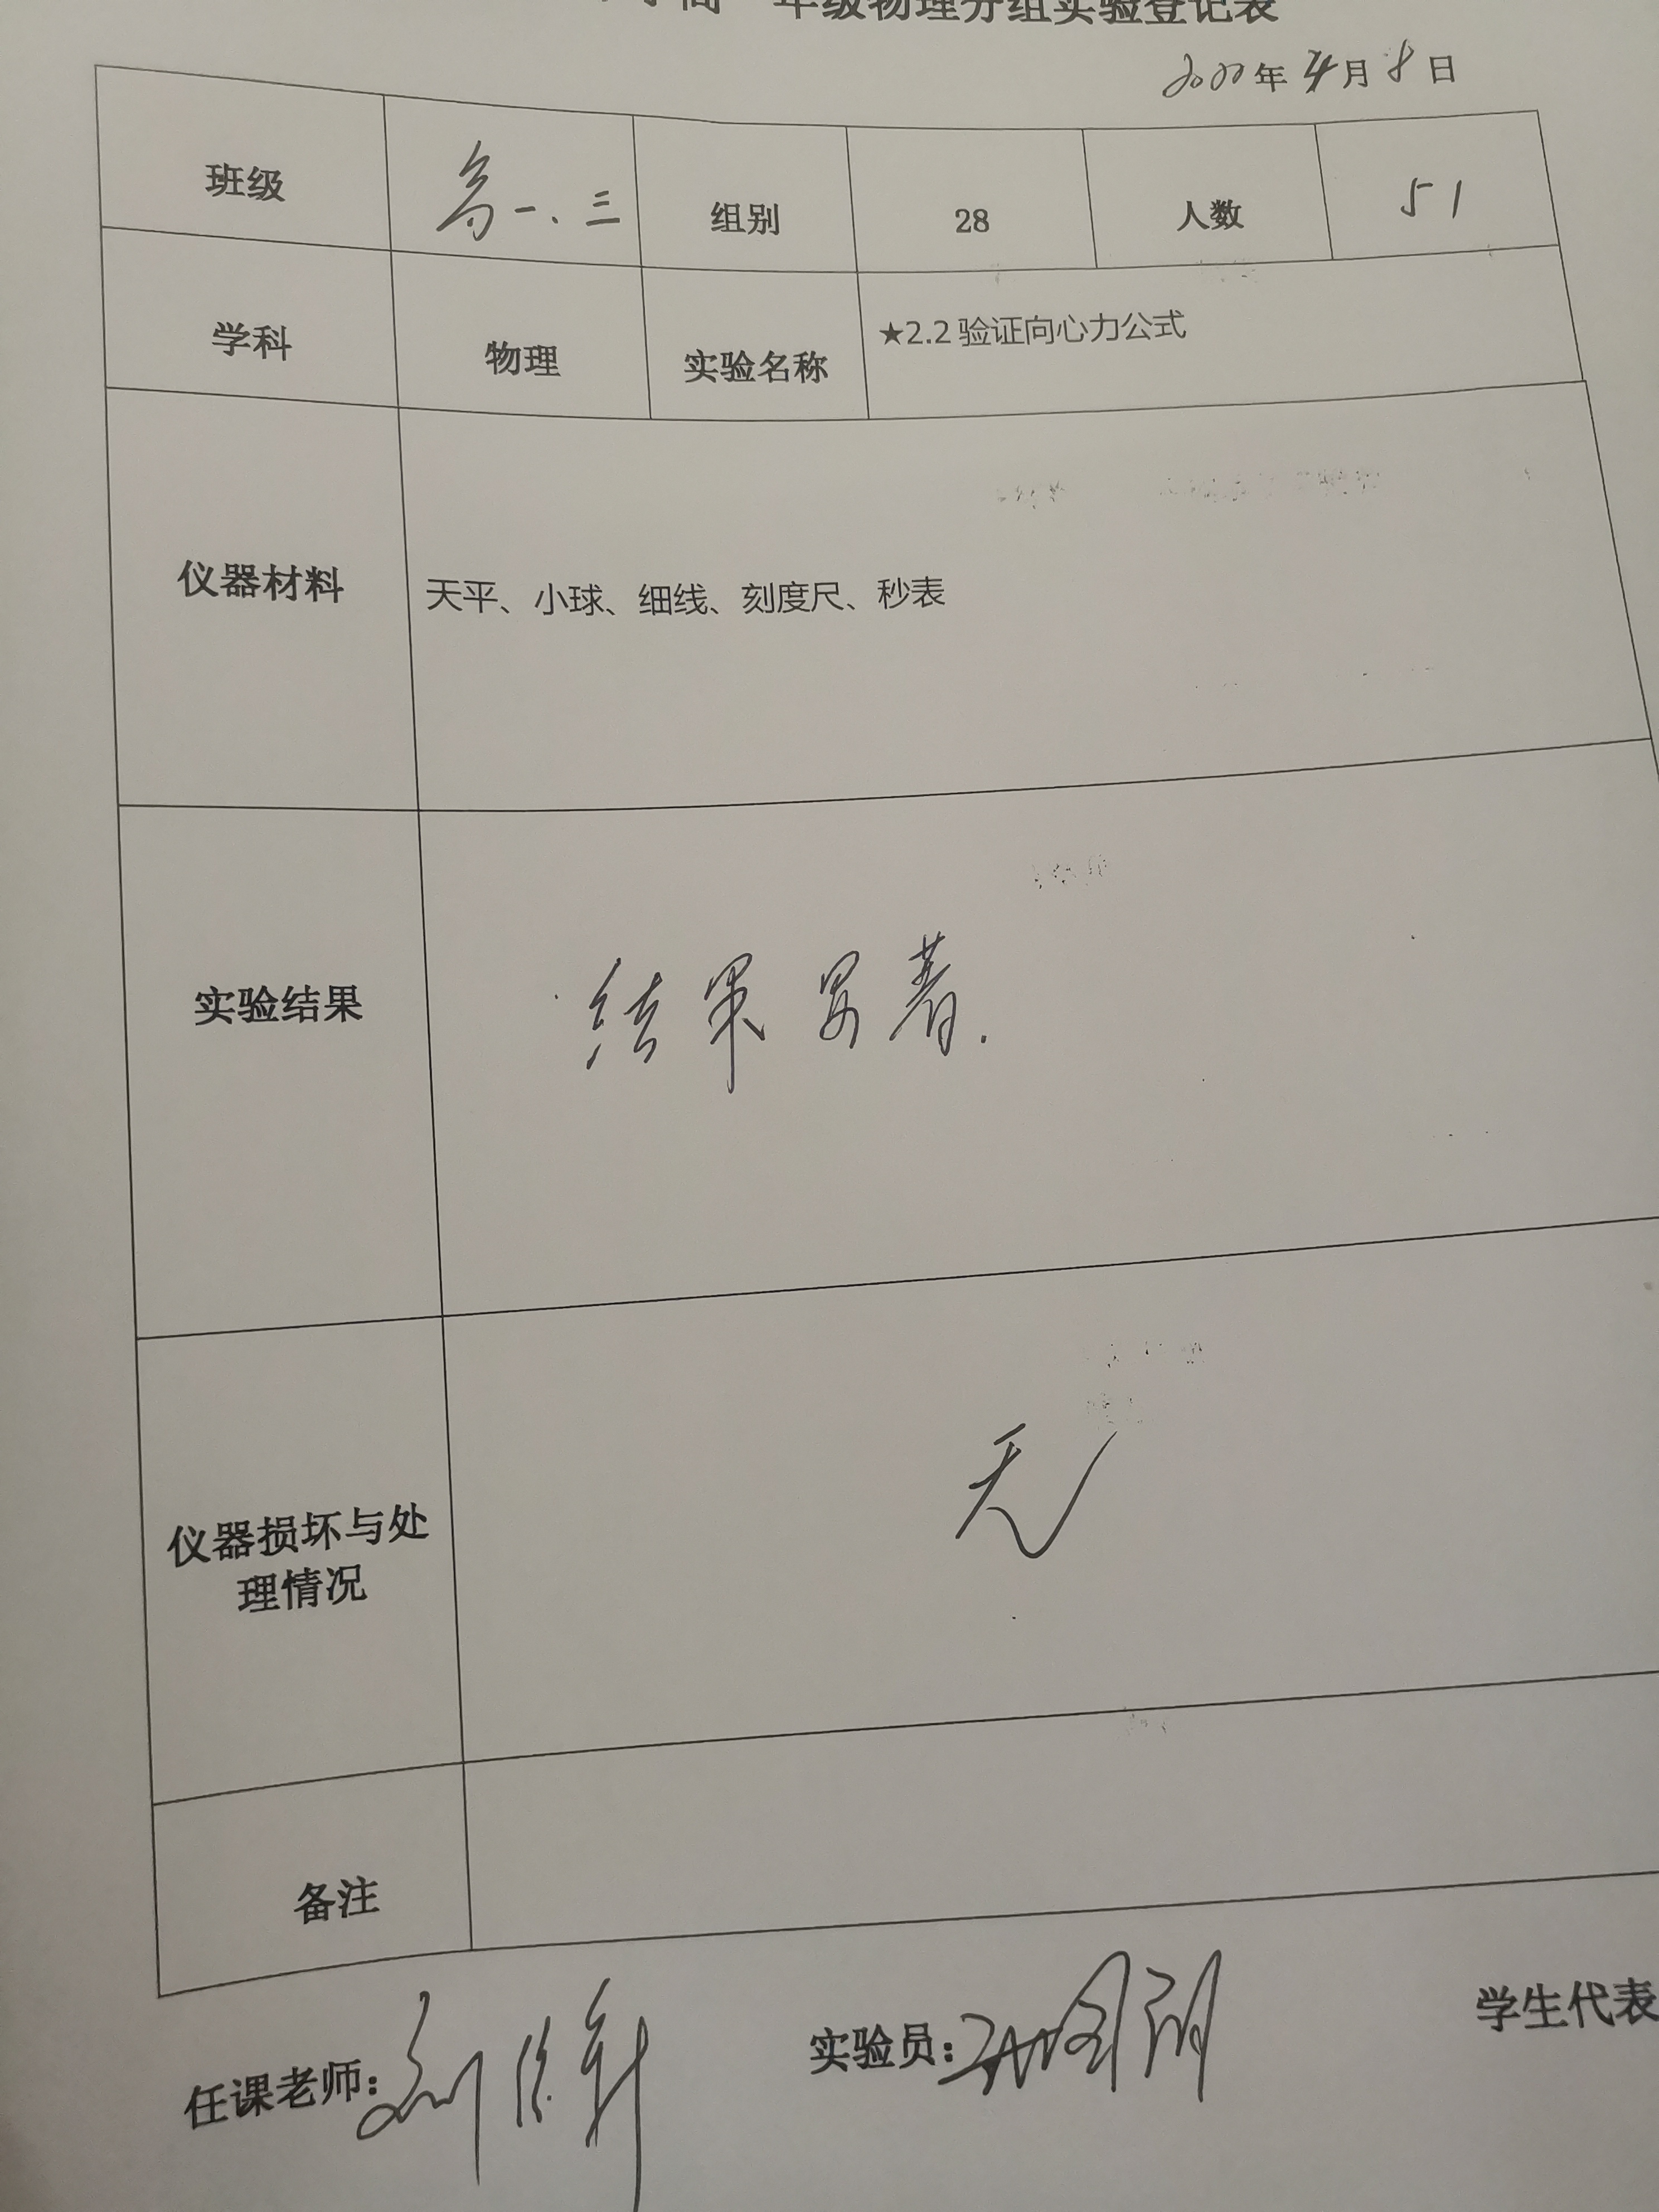 年级物理分组实验登记表
年4月8日
班级 高一、三 组别 28 人数 51
学科 物理 实验名称 ★2.2 验证向心力公式
仪器材料 天平、小球、细线、刻度尺、秒表
实验结果 结果显著.
仪器损坏与处
理情况 无
备注
任课老师: 实验员: 学生代表